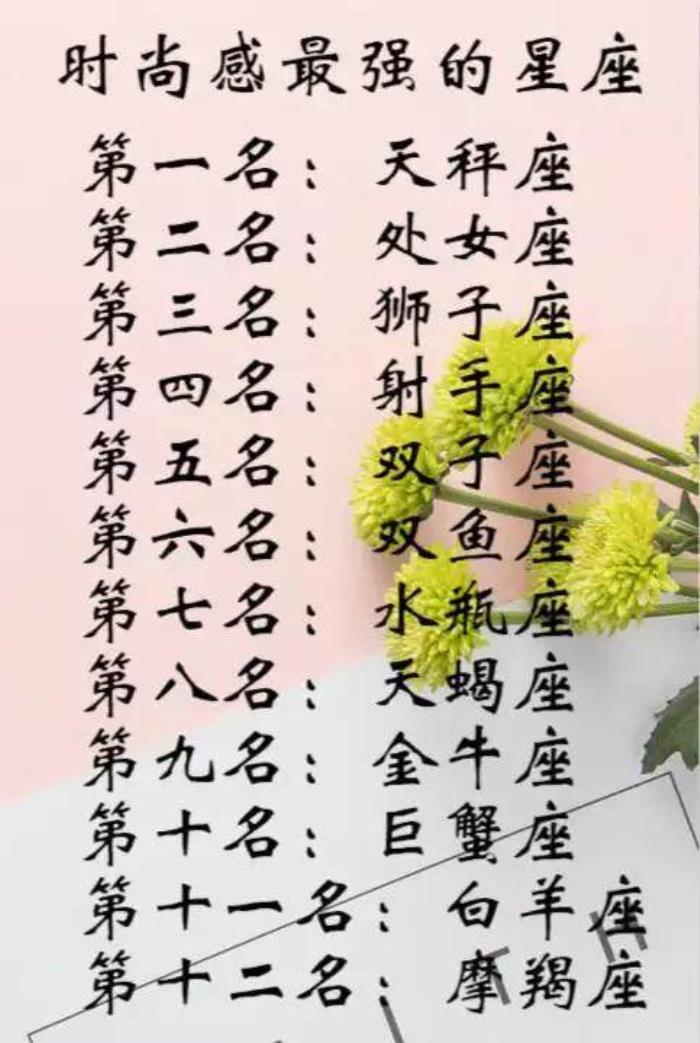 时尚感最强的星座
第一名：天秤座
第二名：处女座
第三名：狮子座
第四名：射手座
第五名：双子座
第六名：双鱼座
第七名：水瓶座
第八名：天蝎座
第九名：金牛座
第十名：巨蟹座
第十一名：白羊座
第十二名：摩羯座